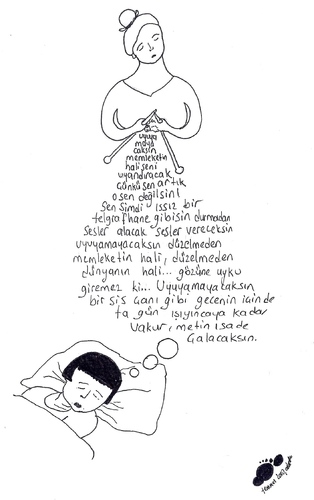 uyuya
maya
caksın
memleketin
hali seni
uyandıracak
çünkü sen artık
o sen değilsin!
Sen şimdi ıssız bir
telgrafhane gibisin durmadan
sesler alacak sesler vereceksin
uyuyamayacaksın düzelmeden
memleketin hali, düzelmeden
dünyanın hali... gözüne uyku
giremez ki... Uyuyamayacaksın
bir sis çanı gibi gecenin içinde
ta gün ışıyıncaya kadar
vakur, metin, sade
çalacaksın.